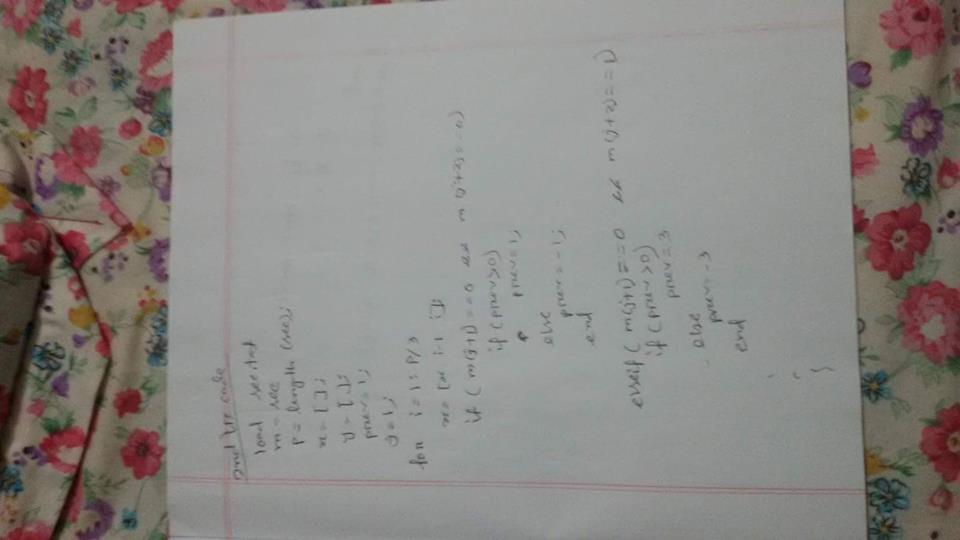 2nd code
load sec.txt
m = sec
P = length (sec);
x = [ ];
y = [ ];
prev = 1;
j = 1;
for i = 1 : P/3
x = [x i-1 i];
if ( m(j+1) == 0 && m(j+2) == 0)
if (prev>0)
prev=1;
else
prev = -1;
end
elseif ( m(j+1) == 0 && m(j+2) == 1)
if (prev>0)
prev = 3
else
prev = -3
end